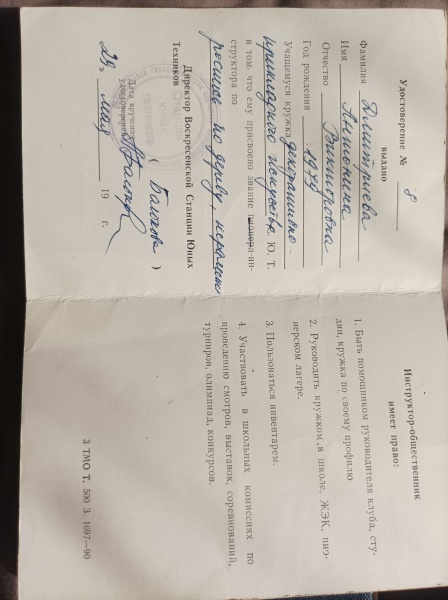 Удостоверение № 8
выдано
Фамилия Дмитриева
Имя Антонина
Отчество Викторовна
Год рождения
Учащемуся кружка декоративно-
прикладного искусства С. Ю. Т.
в том, что ему присвоено звание пионера-ин-
структора по
росписи по дереву, керамике
Директор Воскресенской Станции Юных
Техников
( )
Дата вручения
удостоверения
„29„ мая 19 г.
Инструктор-общественник
имеет право:
1. Быть помощником руководителя клуба, сту-
дии, кружка по своему профилю
2. Руководить кружком в школе, ЖЭК, пио-
нерском лагере.
3. Пользоваться инвентарем.
4. Участвовать в школьных комиссиях по
проведению смотров, выставок, соревнований,
турниров, олимпиад, конкурсов.
3 ТМО Т. 500 З. 1697—90